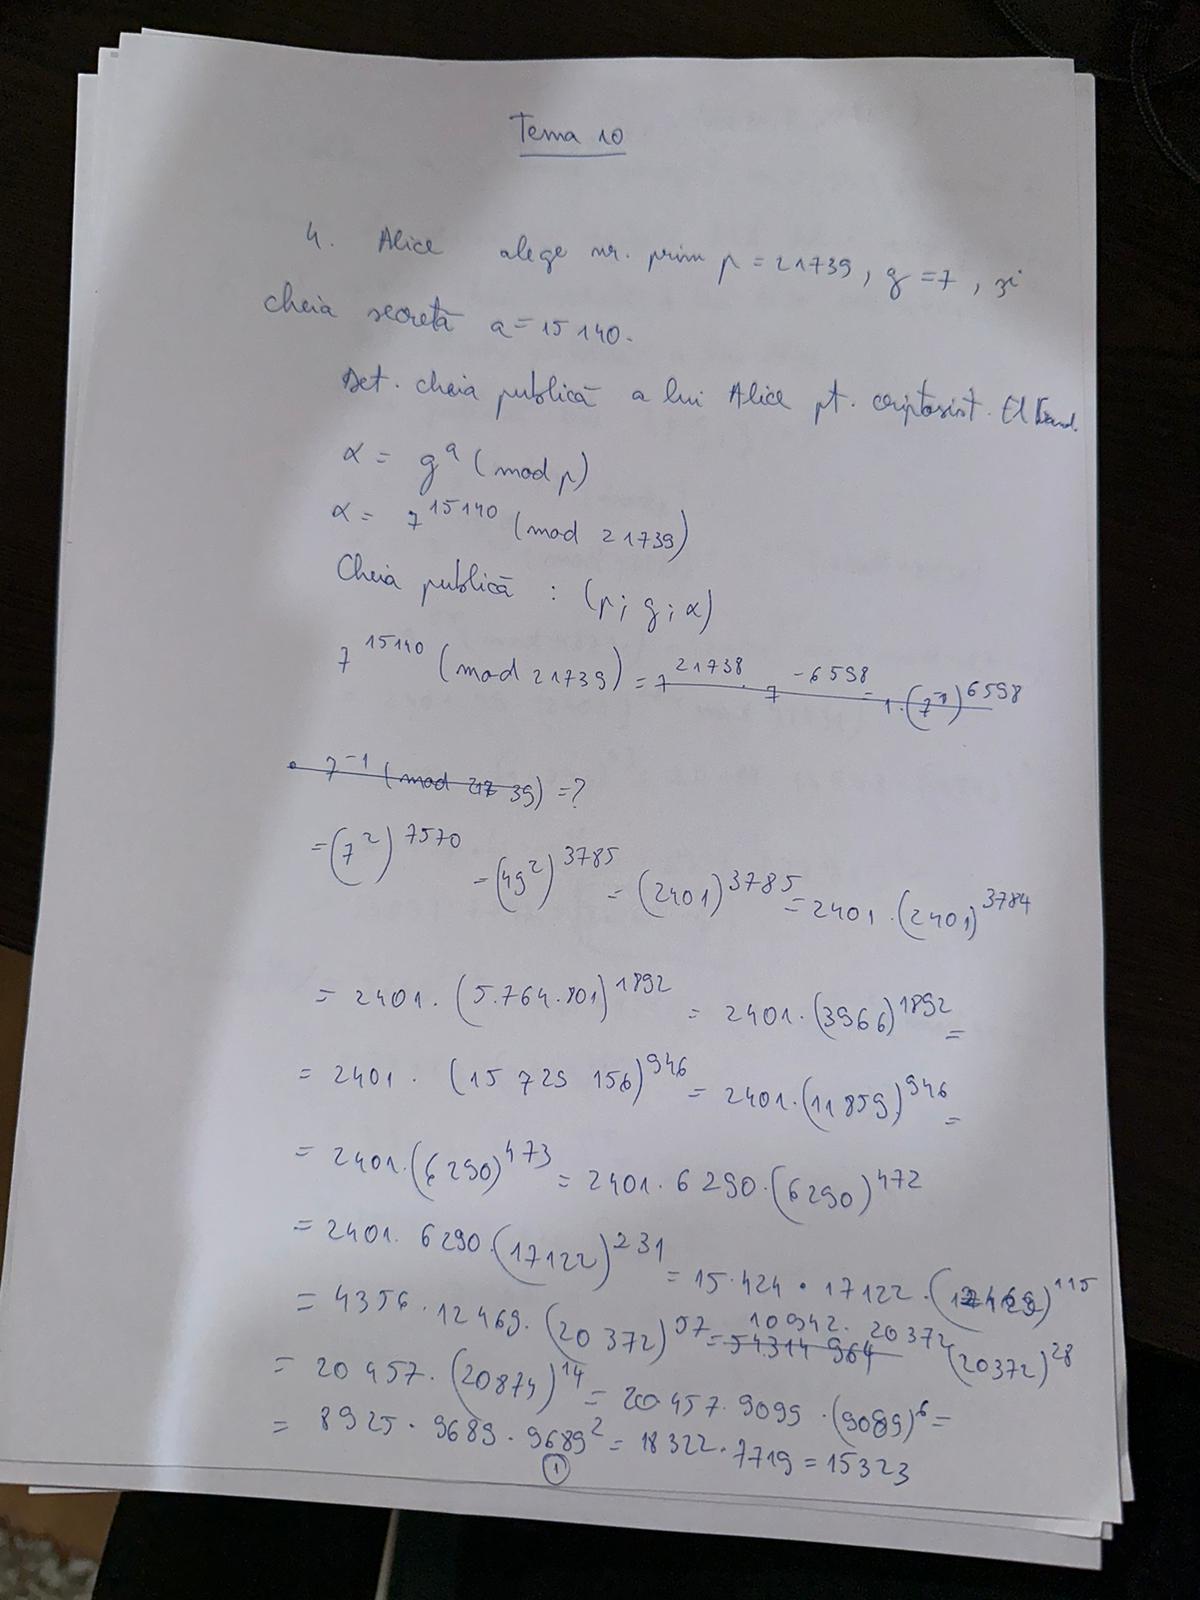 Tema 10
4. Alice alege nr. prim p = 21739, g = 7, și
cheia secretă a = 15140.
Det. cheia publică a lui Alice pt. criptosist. El Gamal.
α = g^a (mod p)
α = 7^15140 (mod 21739)
Cheia publică : (p; g; α)
7^15140 (mod 21739) = 7^21738 · 7^-6598 = 1·(7^-1)^6598
• 7^-1 (mod 21739) = ?
= (7^2)^7570 = (49^2)^3785 = (2401)^3785 = 2401·(2401)^3784
= 2401·(5.764.801)^1892 = 2401·(3966)^1892 =
= 2401·(15 729 156)^946 = 2401·(11859)^946 =
= 2401·(6290)^473 = 2401·6290·(6290)^472
= 2401·6290·(17122)^231 = 15.424·17122·(12469)^115
= 4356·12469·(20372)^57 = 54314 964 10942·20372 (20372)^28
= 20457·(20874)^14 = 20457·9099·(9089)^6 =
= 8925·9689·9689^2 = 18322·7719 = 15323
1